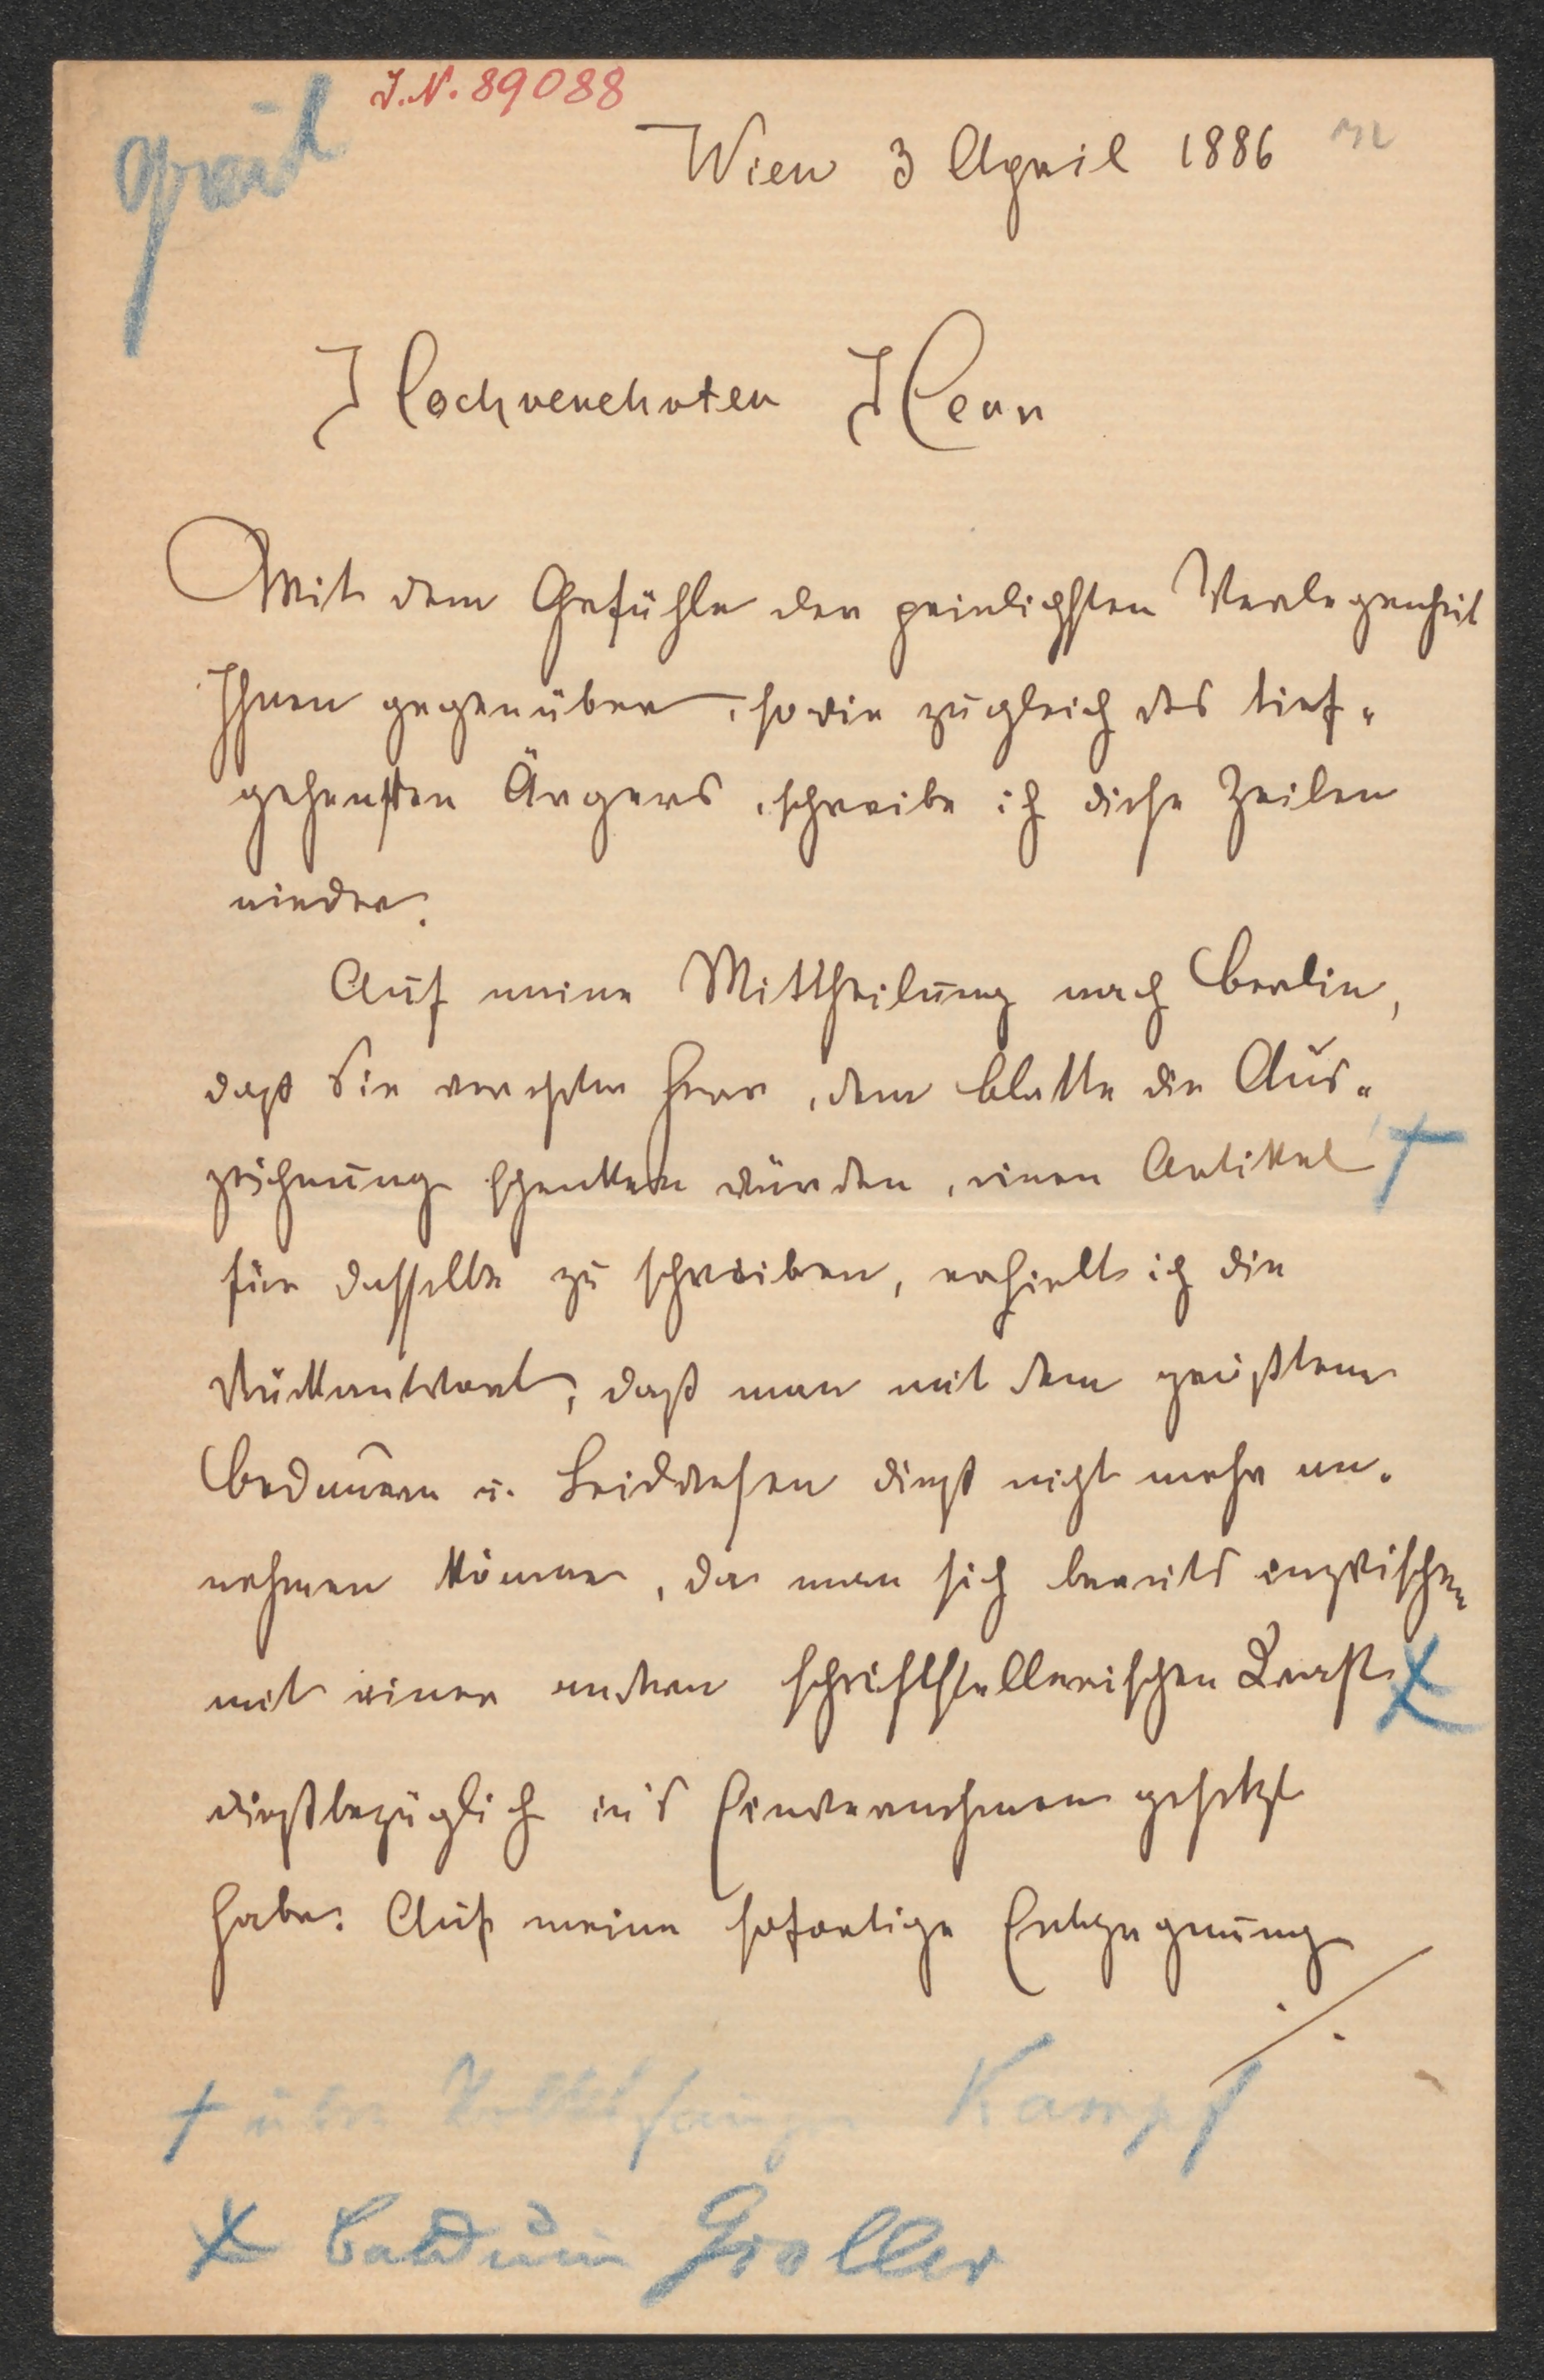 J.N. 89088
Wien 3 April 1886
Hochverehrter Herr
Mit dem Gefühle der peinlichsten Verlegenheit
Ihnen gegenüber, sowie zugleich des tief-
gehensten Ärgers, schreibe ich diese Zeilen
nieder.
Auf meine Mittheilung nach Berlin,
daß Sie verehrter Herr, dem Blatte die Aus-
zeichnung schenken würden, einen Artikel †
für dasselbe zu schreiben, erhielt ich die
Rückantwort, daß man mit dem größten
Bedauern u. Leidwesen dieß nicht mehr an-
nehmen könne, da man sich bereits inzwischen
mit einer andern schriftstellerischen Kraft X
dießbezüglich in's Einvernehmen gesetzt
habe. Auf meine sofortige Entgegnung
./.
† über Volkssänger Kampf
X Balduin Groller